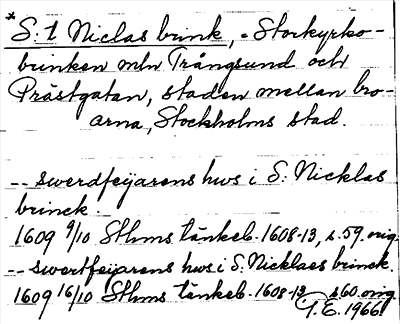 *
S:t Niclas brink, = Storkyrko-
brinken mln Trångsund och
Prästgatan, staden mellan bro-
arna, Stockholms stad.
-- swerdfeijarens hws i S: Nicklas
brinck
1609 9/10 Sthms tänkeb. 1608-13, s. 59. orig.
-- swertfeijarens hws i S. Nicklaes brinck.
1609 16/10 Sthms tänkeb. 1608-13 s 60. orig.
T.E. 1966